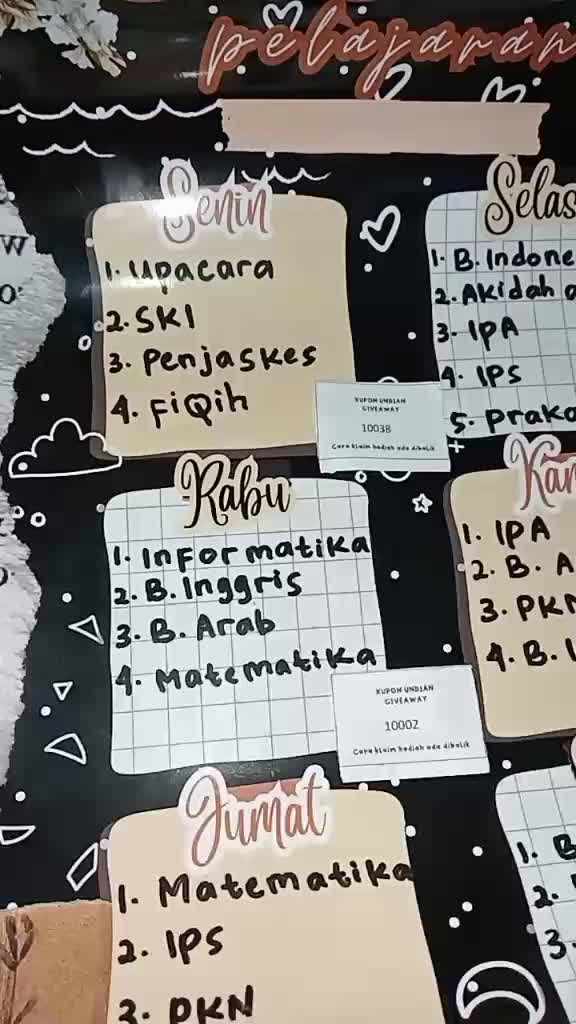 pelajaran
Senin
1. Upacara
2. SKI
3. Penjaskes
4. FiQih
1. B. Indone
2. Akidah
3. IPA
4. IPS
5.
KUPON UNDIAN
GIVEAWAY
10038
Cara klaim hadiah ada dibalik
Rabu
1. Informatika
2. B. Inggris
3. B. Arab
4. Matematika
1. IPA
2. B. A
3. PKN
4. B.
KUPON UNDIAN
GIVEAWAY
10002
Cara klaim hadiah ada dibalik
Jumat
1. Matematika
2. IPS
3. PKN
1. B
2.
3.